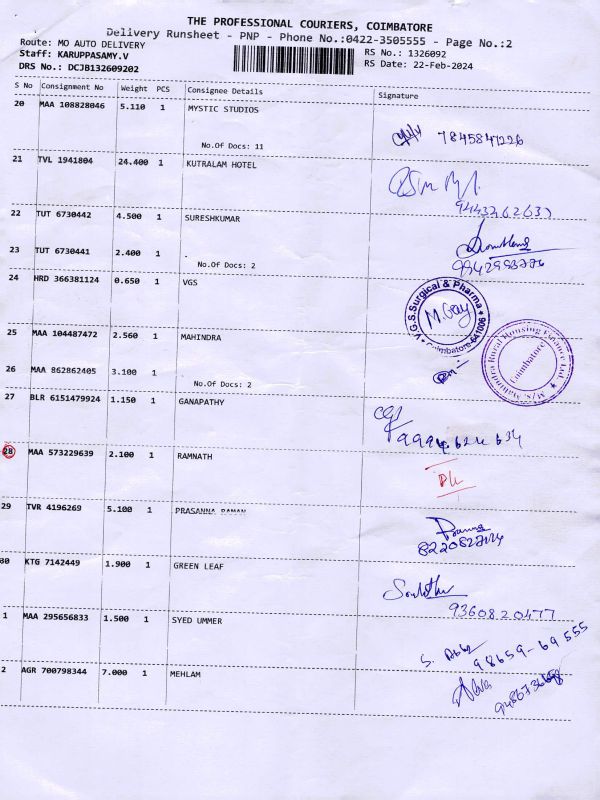 THE PROFESSIONAL COURIERS, COIMBATORE
Delivery Runsheet - PNP - Phone No.:0422-3505555 - Page No.:2
Route: MO AUTO DELIVERY
Staff: KARUPPASAMY.V
DRS No.: DCJB132609202
RS No.: 1326092
RS Date: 22-Feb-2024
S No Consignment No Weight PCS Consignee Details Signature
20 MAA 108828046 5.110 1 MYSTIC STUDIOS
No.Of Docs: 11
7845847226
21 TVL 1941804 24.400 1 KUTRALAM HOTEL
22 TUT 6730442 4.500 1 SURESHKUMAR
23 TUT 6730441 2.400 1
No.Of Docs: 2
24 HRD 366381124 0.650 1 VGS
V.G.S. Surgical & Pharma
Coimbatore-641006
25 MAA 104487472 2.560 1 MAHINDRA
M/s. Mahindra Rural Housing Finance Ltd.
Coimbatore
26 MAA 862862405 3.100 1
No.Of Docs: 2
27 BLR 6151479924 1.150 1 GANAPATHY
28 MAA 573229639 2.100 1 RAMNATH
29 TVR 4196269 5.100 1 PRASANNA RAMAN
30 KTG 7142449 1.900 1 GREEN LEAF
9360820477
1 MAA 295656833 1.500 1 SYED UMMER
98659-69555
2 AGR 700798344 7.000 1 MEHLAM